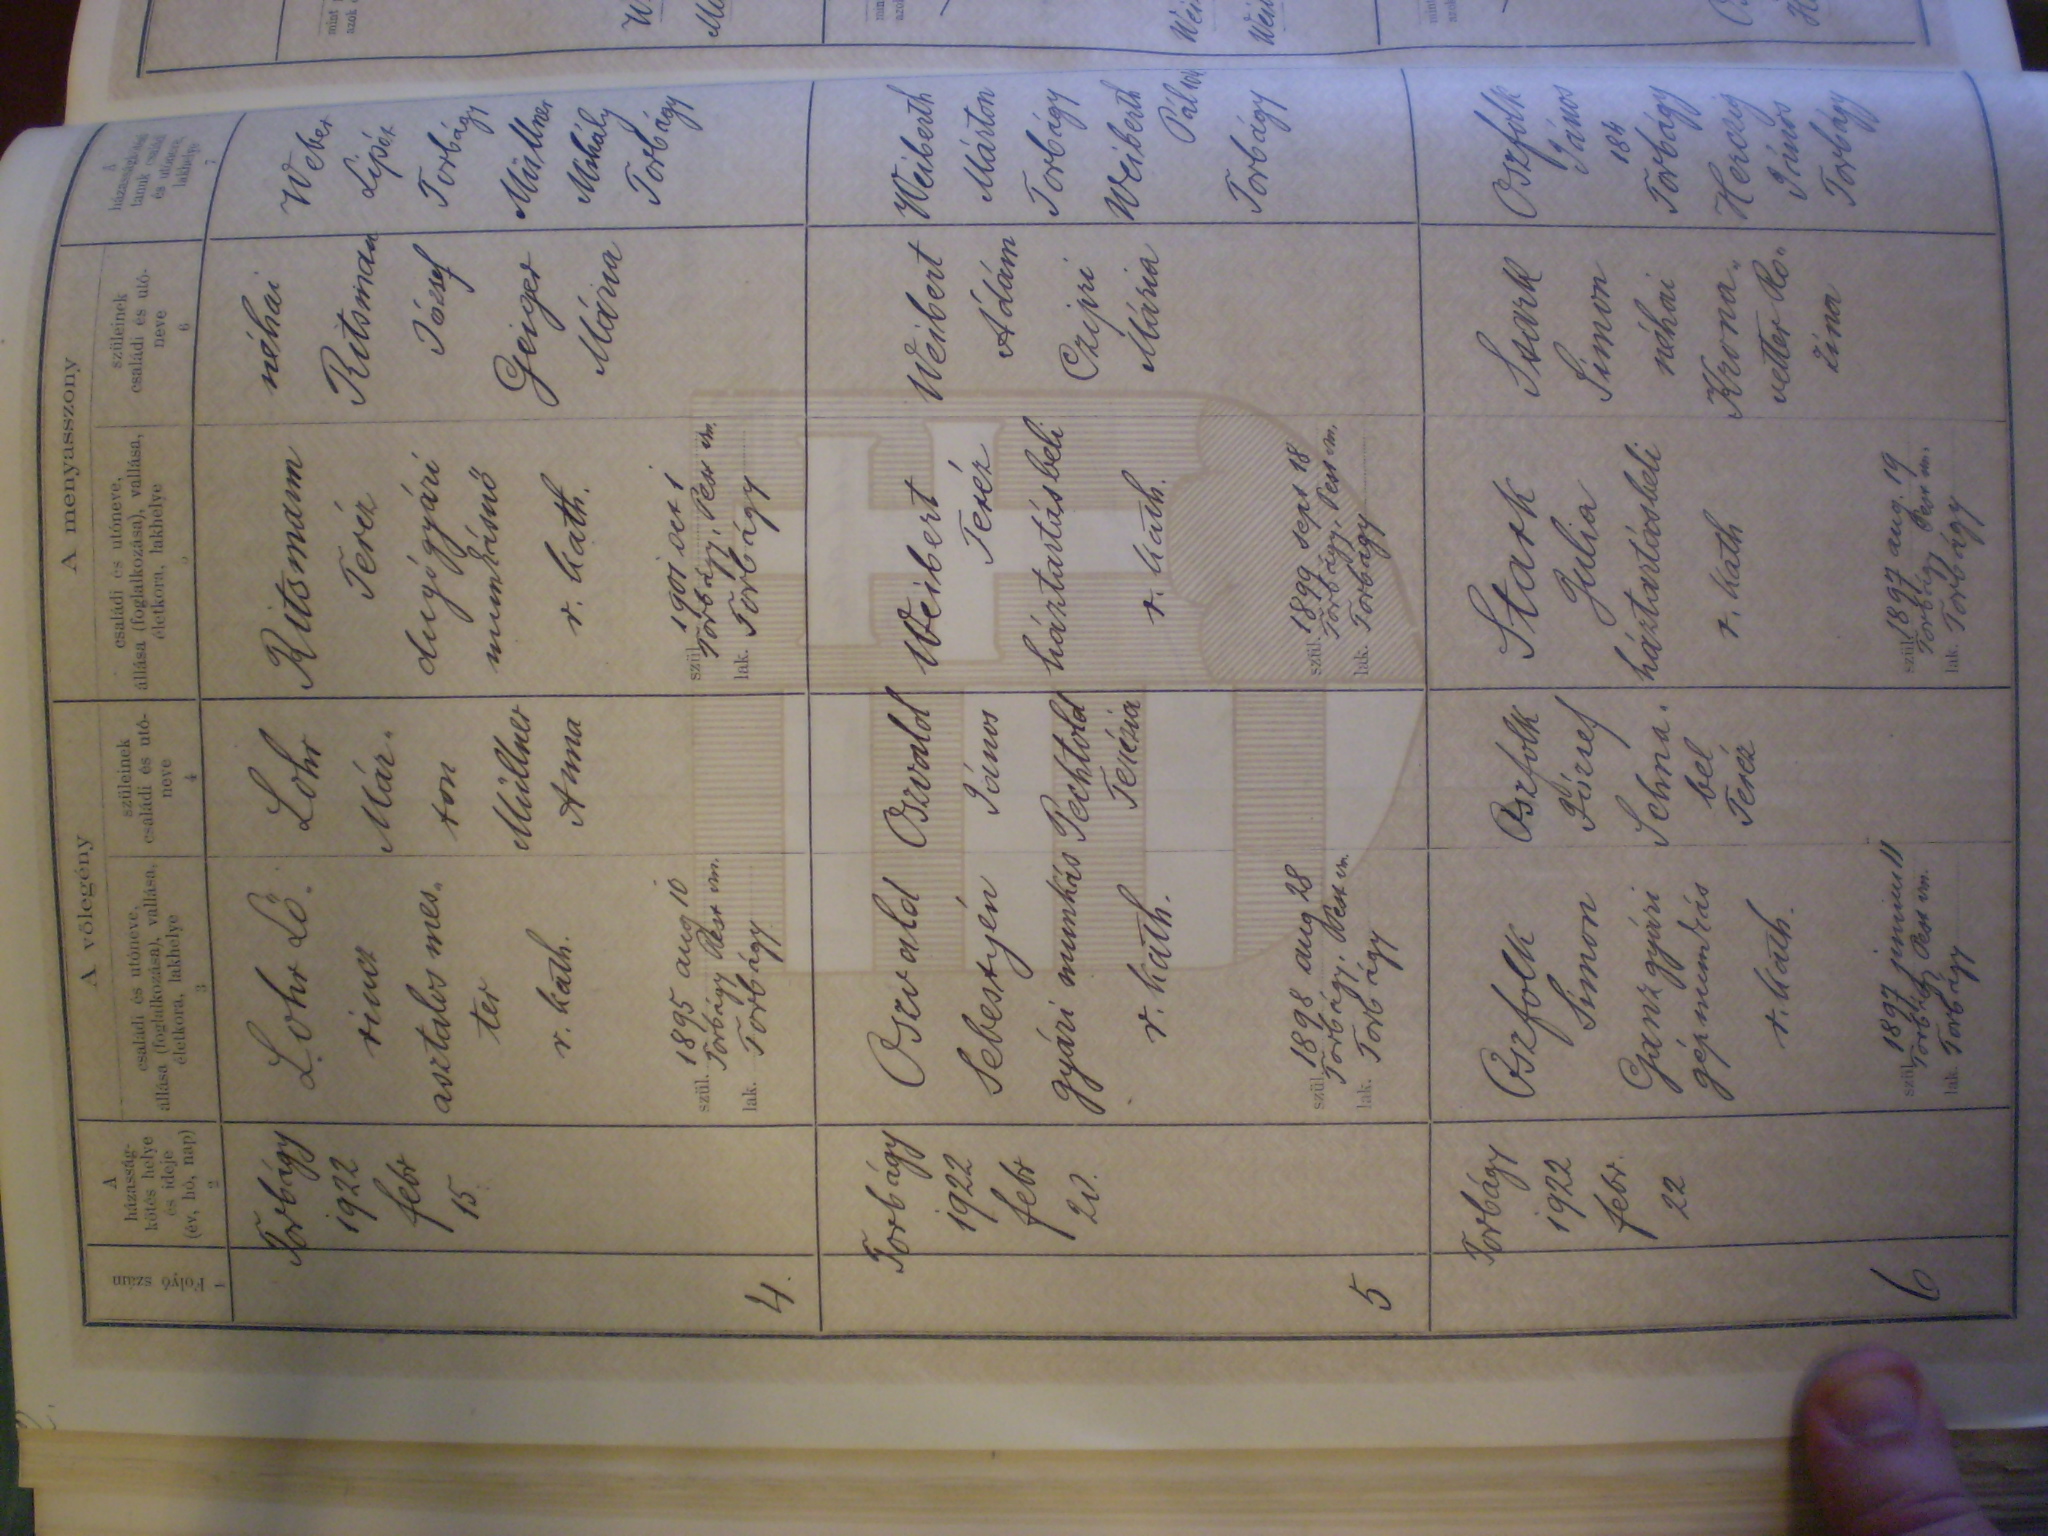 A menyasszony
A vőlegény
Folyó
szám
1
A
házasság-
kötés helye
és ideje
(év, hó, nap)
2
családi és utóneve,
állása (foglalkozása), vallása,
életkora, lakhelye
3
szüleinek
családi és utó-
neve
4
családi és utóneve,
állása (foglalkozása), vallása,
életkora, lakhelye
szüleinek
családi és utó-
neve
6
A
házasságkötési
tanuk családi
és utóneve,
lakhelye
7
4.
Torbágy
1922
febr
15.
Lohr Lő-
rincz
asztalos mes-
ter
r. kath.
szül. 1895 aug 10
Torbágy Pest vm.
lak. Torbágy
Lohr
Már-
ton
Müllner
Anna
Ritsmann
Teréz
dugógyári
munkásnő
r. kath.
szül. 1901 oct 1
Torbágy, Pest vm.
lak. Torbágy
néhai
Ritsman
József
Geiger
Mária
Weber
Lipót
Torbágy
Müllner
Mihály
Torbágy
5
Torbágy
1922
febr
20.
Oszvald
Sebestyén
gyári munkás
r. kath.
szül. 1898 aug 28
Torbágy, Pest vm.
lak. Torbágy
Oszvald
János
Pechtold
Terézia
Weibert
Teréz
háztartásbeli
r. kath.
szül. 1899 sept 18
Torbágy, Pest vm.
lak. Torbágy
Weibert
Ádám
Czipri
Mária
Weiberth
Márton
Torbágy
Weiberth
Pál
Torbágy
6
Torbágy
1922
febr.
22
Oszfolk
Simon
Ganzgyári
gépmunkás
r. kath.
szül. 1897 junius 11
Torbágy Pest vm.
lak. Torbágy
Oszfolk
József
Schna-
bel
Teréz
Stark
Julia
háztartásbeli
r. kath
szül. 1897 aug. 19
Torbágy Pest vm.
lak. Torbágy
Stark
Simon
néhai
Krona-
vetter Ro-
zina
Oszfolk
János
184
Torbágy
Herczig
János
Torbágy